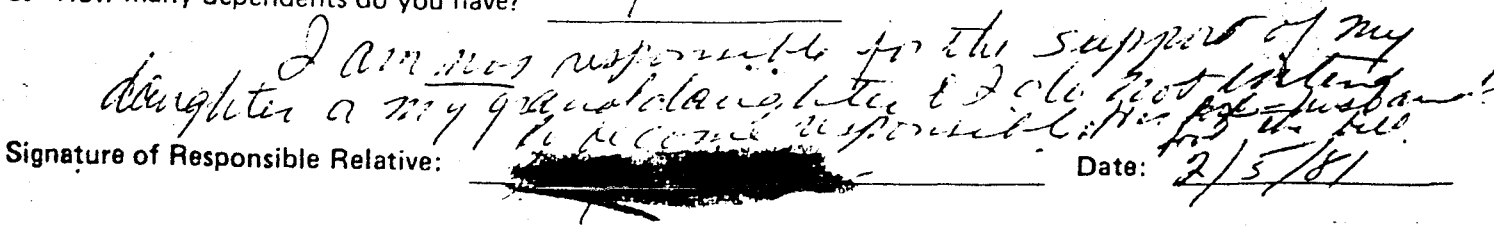 How many dependents do you have? 1
I am not responsible for the support of my
daughter or my granddaughter & I do not intend
to become responsible. Her ex-husband
for the bill.
Signature of Responsible Relative: Date: 2/5/81